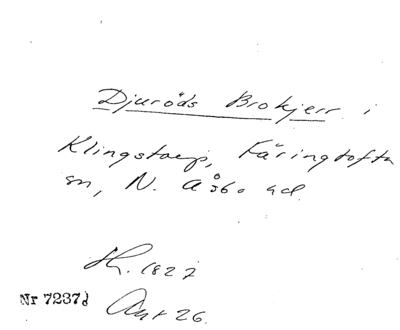 Djuröds Brokjerr i
Klingstorp, Färingtofta
sn, N. Åsbo hd.
H. 1827
Nr 7237d Ant 26.